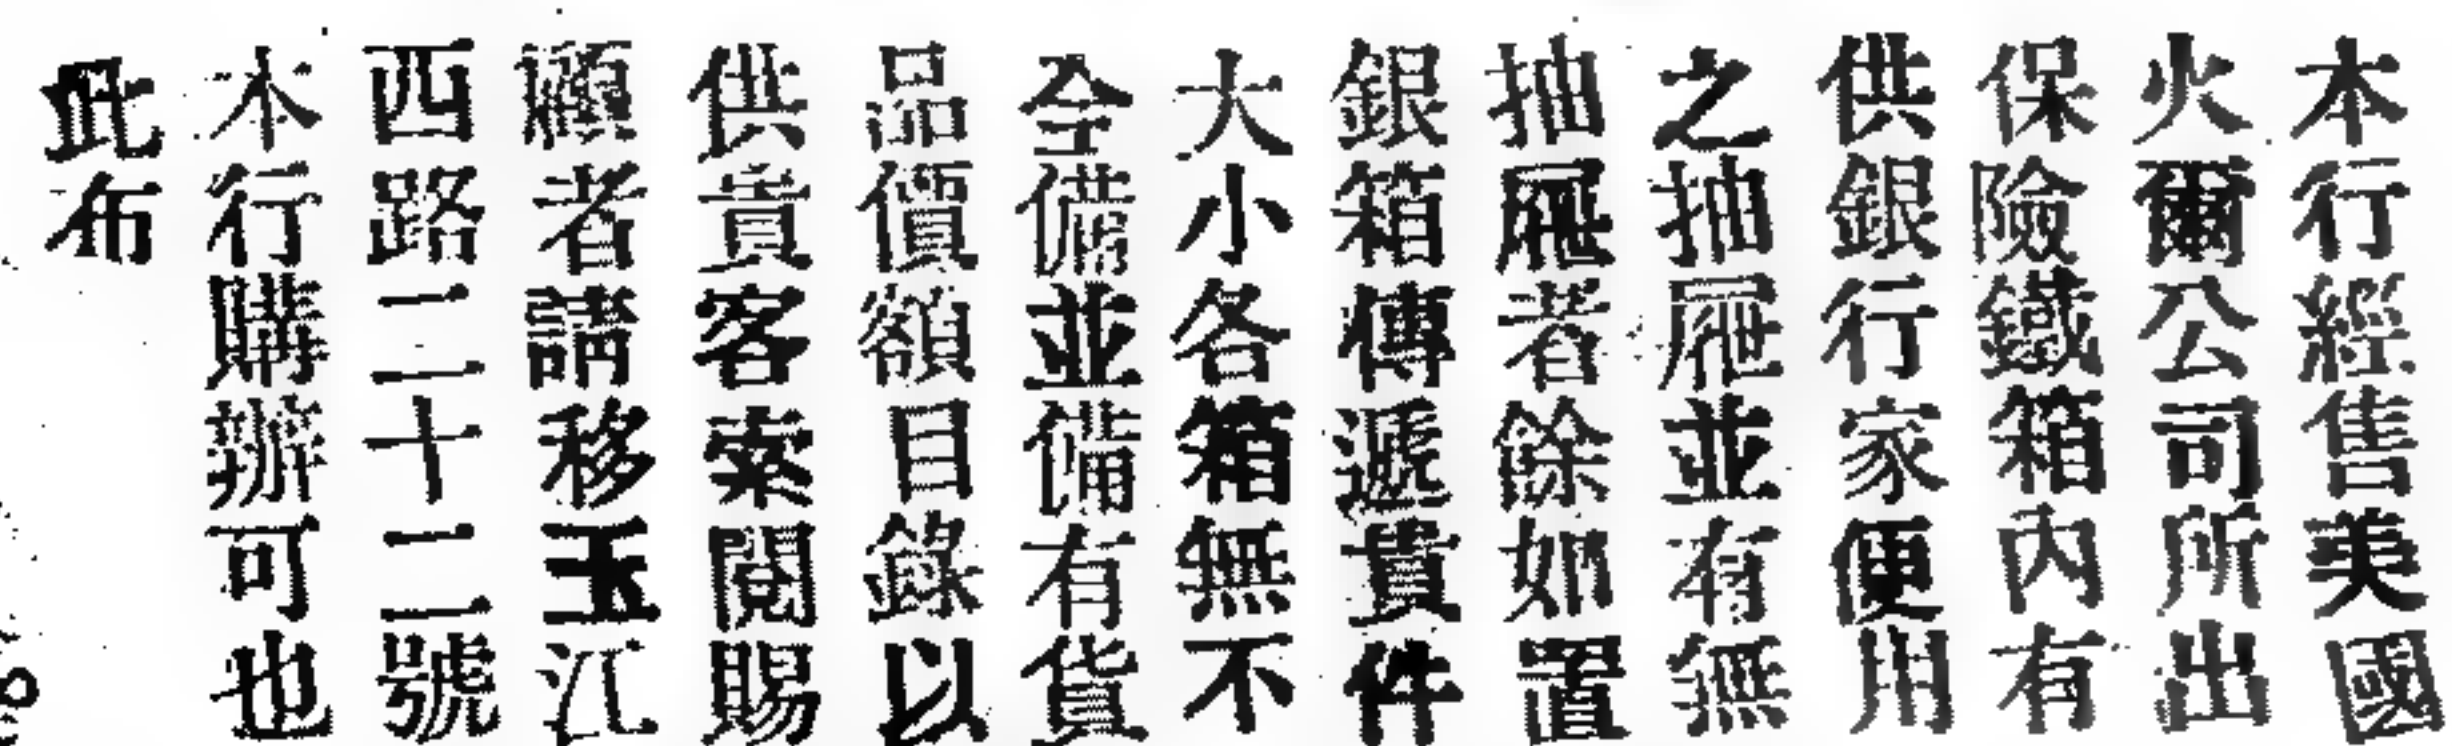 本行經售美國
火爾公司所出
保險鐵箱內有
供銀行家便用
之抽屜並有無
抽屜者餘如置
銀箱傳遞貴件
大小各箱無不
全備並備有貨
品價額目錄以
供貴客索閱賜
顧者請移玉江
西路二十二號
本行購辦可也
此布